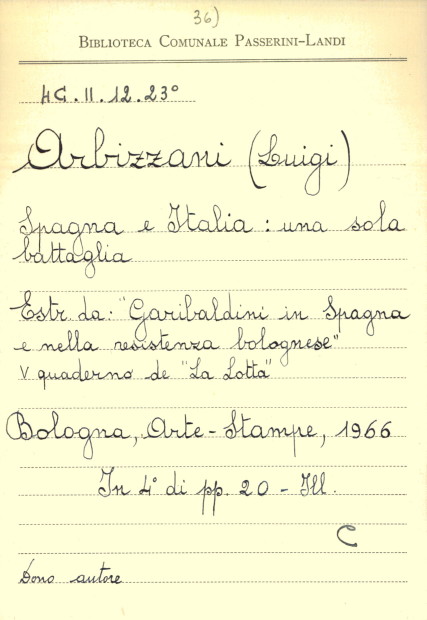 36)
BIBLIOTECA COMUNALE PASSERINI-LANDI
4G.II.12.23°
Arbizzani (Luigi)
Spagna e Italia : una sola
battaglia
Estr. da: "Garibaldini in Spagna
e nella resistenza bolognese"
V quaderno de "La Lotta"
Bologna, Arte-Stampe, 1966
In 4° di pp. 20 - Ill.
C
Dono autore